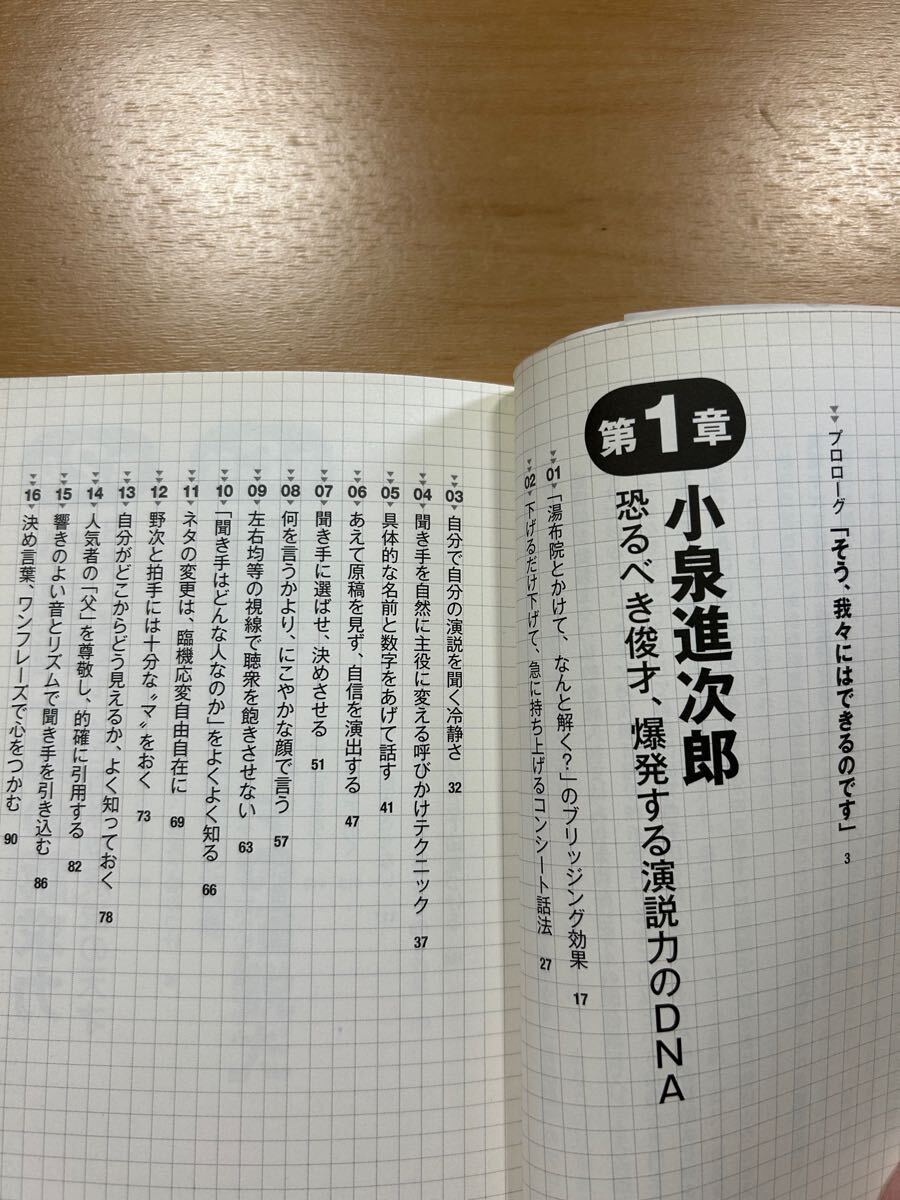 プロローグ 「そう、我々にはできるのです」 3
第1章
小泉進次郎
恐るべき俊才、爆発する演説力のDNA
01 「湯布院とかけて、なんと解く?」のブリッジング効果 17
02 下げるだけ下げて、急に持ち上げるコンシート話法 27
03 自分で自分の演説を聞く冷静さ 32
04 聞き手を自然に主役に変える呼びかけテクニック 37
05 具体的な名前と数字をあげて話す 41
06 あえて原稿を見ず、自信を演出する 47
07 聞き手に選ばせ、決めさせる 51
08 何を言うかより、にこやかな顔で言う 57
09 左右均等の視線で聴衆を飽きさせない 63
10 「聞き手はどんな人なのか」をよくよく知る 66
11 ネタの変更は、臨機応変自由自在に 69
12 野次と拍手には十分な〝マ〟をおく 73
13 自分がどこからどう見えるか、よく知っておく 78
14 人気者の「父」を尊敬し、的確に引用する 82
15 響きのよい音とリズムで聞き手を引き込む 86
16 決め言葉、ワンフレーズで心をつかむ 90